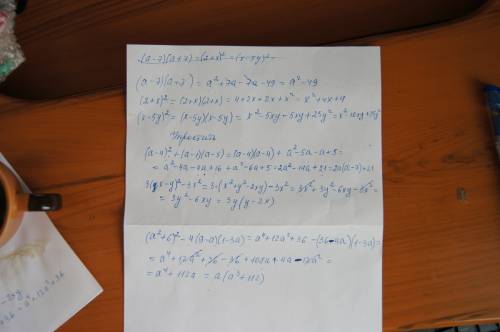 (a-7)(a+7) = (2+x)² = (x-5y)² =
(a-7)(a+7) = a²+7a-7a-49 = a²-49
(2+x)² = (2+x)(2+x) = 4+2x+2x+x² = x²+4x+4
(x-5y)² = (x-5y)(x-5y) = x²-5xy-5xy+25y² = x²-10xy+25y²
Упростить
(a-4)²+(a-1)(a-5) = (a-4)(a-4)+a²-5a-a+5 =
= a²-4a-4a+16+a²-6a+5 = 2a²-14a+21 = 2a(a-7)+21
3(x-y)²-3x² = 3·(x²+y²-2xy)-3x² = 3x²+3y²-6xy-3x² =
= 3y²-6xy = 3y(y-2x)
(a²+6)²-4(9-a)(1-3a) = a⁴+12a²+36-(36-4a)(1-3a) =
= a⁴+12a²+36-36+108a+4a-12a² =
= a⁴+112a = a(a³+112)